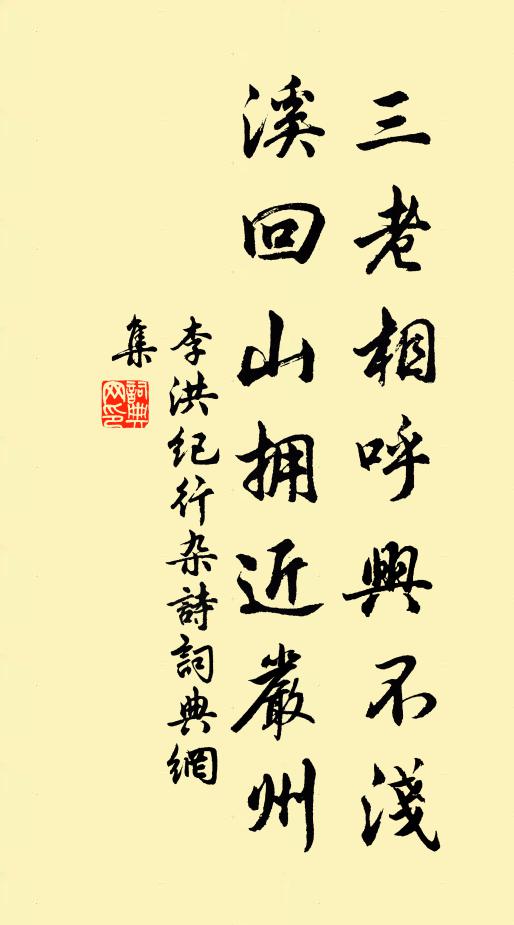 三老相呼興不淺
溪回山拥近嚴州
李洪纪行杂詩詞典網
集
詞典網印